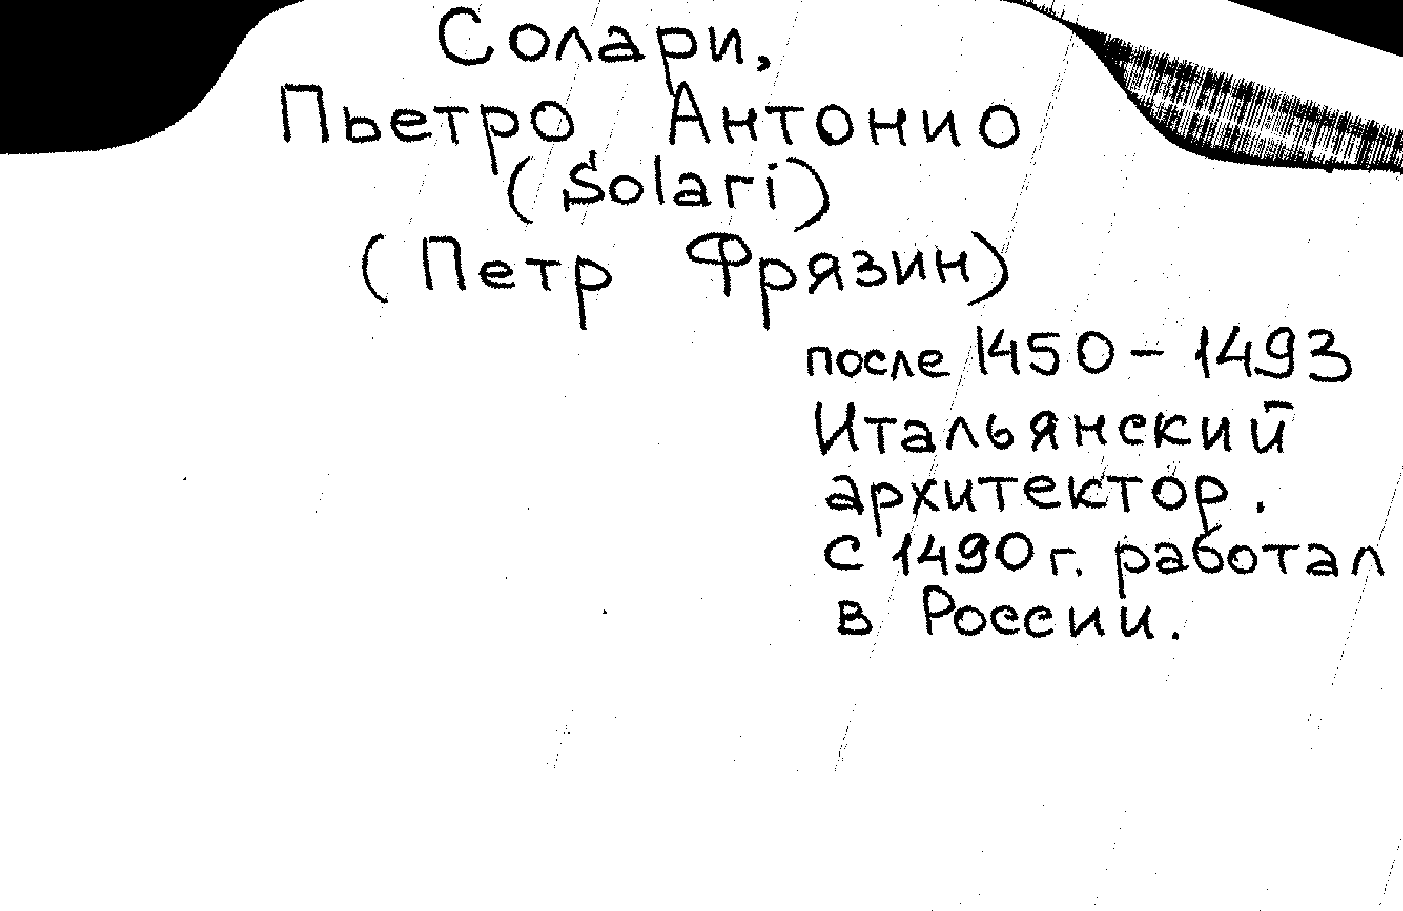 Солари,
Пьетро Антонио
(Solari)
(Петр Фрязин)
после 1450 – 1493
Итальянский
архитектор.
С 1490 г. работал
в России.